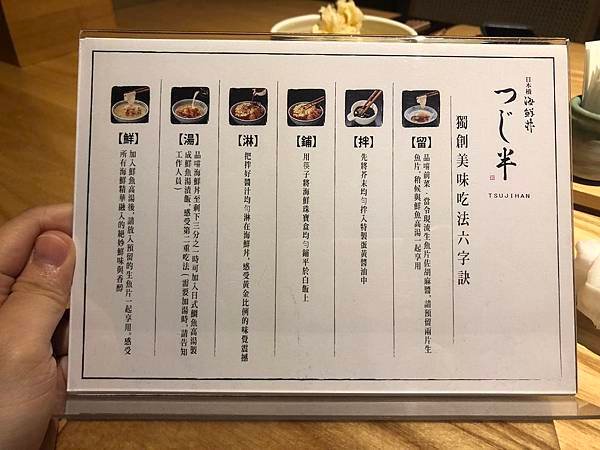 日本橋
海鮮丼
つじ半
TSUJIHAN
獨創美味吃法六字訣
【留】
品嚐前菜，當令現流生魚片佐胡麻醬，請預留兩片生
魚片，稍候與鮮魚高湯一起享用
【拌】
先將芥末均勻拌入特製蛋黃醬油中
【鋪】
用筷子將海鮮珠寶盒均勻鋪平於白飯上
【淋】
把拌好醬汁均勻淋在海鮮丼，感受黃金比例的味覺震撼
【湯】
品嚐海鮮丼至剩下三分之一時可加入日式鯛魚高湯製
成鮮魚湯漬飯，感受第二重吃法（需要加湯時，請告知
工作人員）
【鮮】
加入鮮魚高湯後，請放入預留的生魚片一起享用，感受
所有海鮮精華融入的絕妙鮮味與香醇